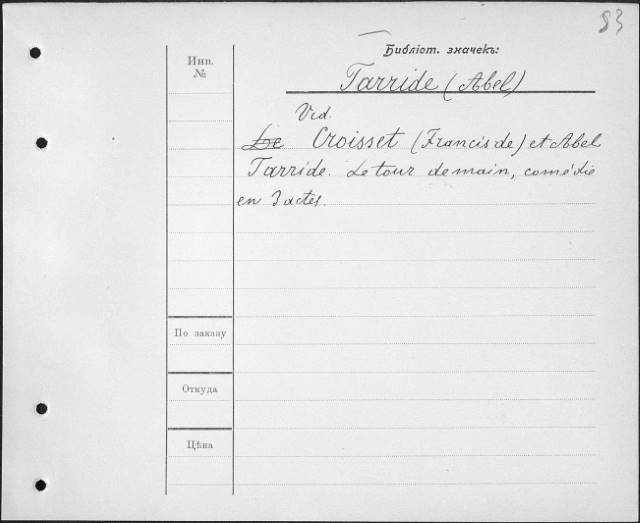 83
Библіот. значекъ:
Инв.
№
Tarride (Abel)
Vid.
Le Croisset (Francis de) et Abel
Tarride. Le tour de main, comédie
en 3 actes.
По заказу
Откуда
Цѣна